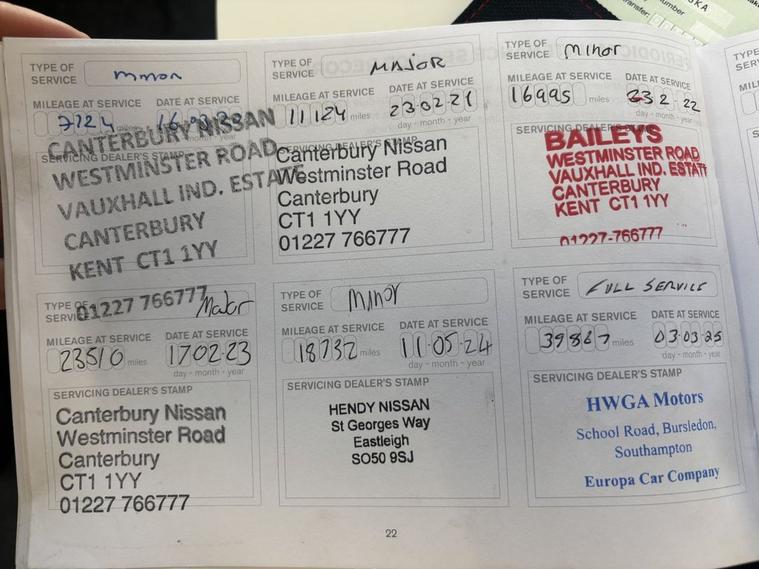 TYPE OF SERVICE minor
MILEAGE AT SERVICE DATE AT SERVICE
7124
SERVICING DEALER'S STAMP
CANTERBURY NISSAN
WESTMINSTER ROAD
VAUXHALL IND. ESTATE
CANTERBURY
KENT CT1 1YY
01227 766777
TYPE OF SERVICE MAJOR
MILEAGE AT SERVICE DATE AT SERVICE
11124 miles 23.02.21
day - month - year
SERVICING DEALER'S STAMP
Canterbury Nissan
Westminster Road
Canterbury
CT1 1YY
01227 766777
TYPE OF SERVICE Minor
MILEAGE AT SERVICE DATE AT SERVICE
16995 miles 23 2 22
day - month - year
SERVICING DEALER'S STAMP
BAILEYS
WESTMINSTER ROAD
VAUXHALL IND. ESTATE
CANTERBURY
KENT CT1 1YY
01227-766777
TYPE OF SERVICE Major
MILEAGE AT SERVICE DATE AT SERVICE
23510 miles 17 02 23
day - month - year
SERVICING DEALER'S STAMP
Canterbury Nissan
Westminster Road
Canterbury
CT1 1YY
01227 766777
TYPE OF SERVICE Minor
MILEAGE AT SERVICE DATE AT SERVICE
18732 miles 11.05.24
day - month - year
SERVICING DEALER'S STAMP
HENDY NISSAN
St Georges Way
Eastleigh
SO50 9SJ
TYPE OF SERVICE FULL SERVICE
MILEAGE AT SERVICE DATE AT SERVICE
39867 miles 03.03.25
day - month - year
SERVICING DEALER'S STAMP
HWGA Motors
School Road, Bursledon,
Southampton
Europa Car Company
22